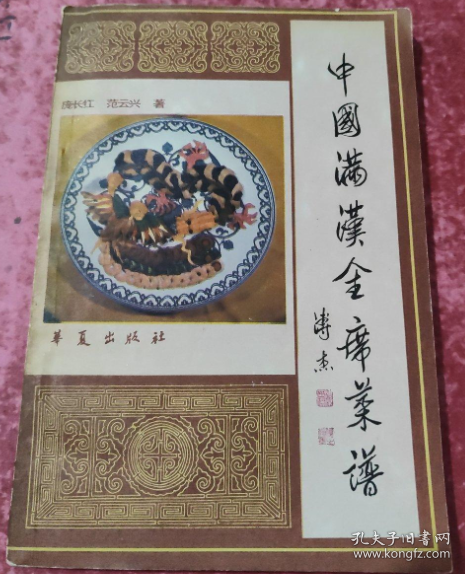 庞长红 范云兴 著
中國满漢全席菜谱
溥杰
華夏出版社
孔夫子旧书网
www.kongfz.com